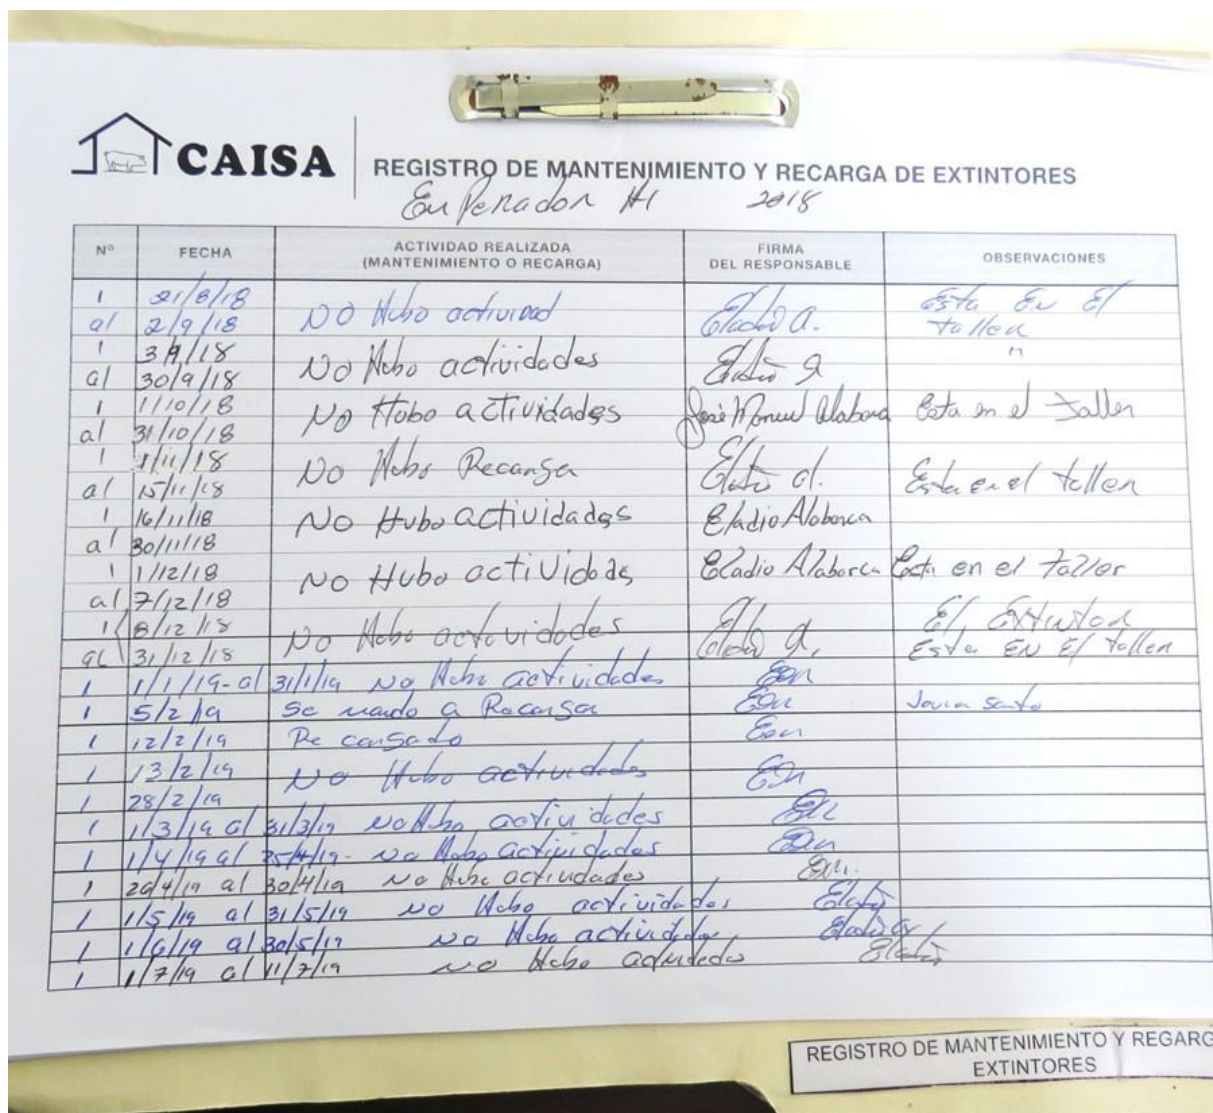 CAISA
REGISTRO DE MANTENIMIENTO Y RECARGA DE EXTINTORES
2018
Nº FECHA ACTIVIDAD REALIZADA (MANTENIMIENTO O RECARGA) FIRMA DEL RESPONSABLE OBSERVACIONES
1 21/8/18 Esta En El
al 2/9/18 NO Hubo actividad Eladio A. taller
1 3/9/18 NO Hubo actividades "
al 30/9/18 Eladio A
1 1/10/18 NO Hubo actividades José Manuel Esta en el taller
al 31/10/18
1 1/11/18 NO Hubo Recarga Eladio A.
al 15/11/18 Esta en el taller
1 16/11/18 NO Hubo actividades Eladio Alaborca
al 30/11/18
1 1/12/18 NO Hubo actividades Eladio Alaborca Esta en el taller
al 7/12/18
1 8/12/18 NO Hubo actividades El Extintor
al 31/12/18 Esta EN El taller
1 1/1/19 - al 31/1/19 No Hubo actividades
1 5/2/19 Se mando a Recarga
1 12/2/19 Recargado
1 13/2/19 NO Hubo actividades
1 28/2/19
1 1/3/19 al 31/3/19 No Hubo actividades
1 1/4/19 al 25/4/19 - No Hubo actividades
1 26/4/19 al 30/4/19 No Hubo actividades
1 1/5/19 al 31/5/19 NO Hubo actividades Eladio
1 1/6/19 al 30/5/19 NO Hubo actividades Eladio
1 1/7/19 al 11/7/19 NO Hubo Eladio
REGISTRO DE MANTENIMIENTO Y REGARG
EXTINTORES